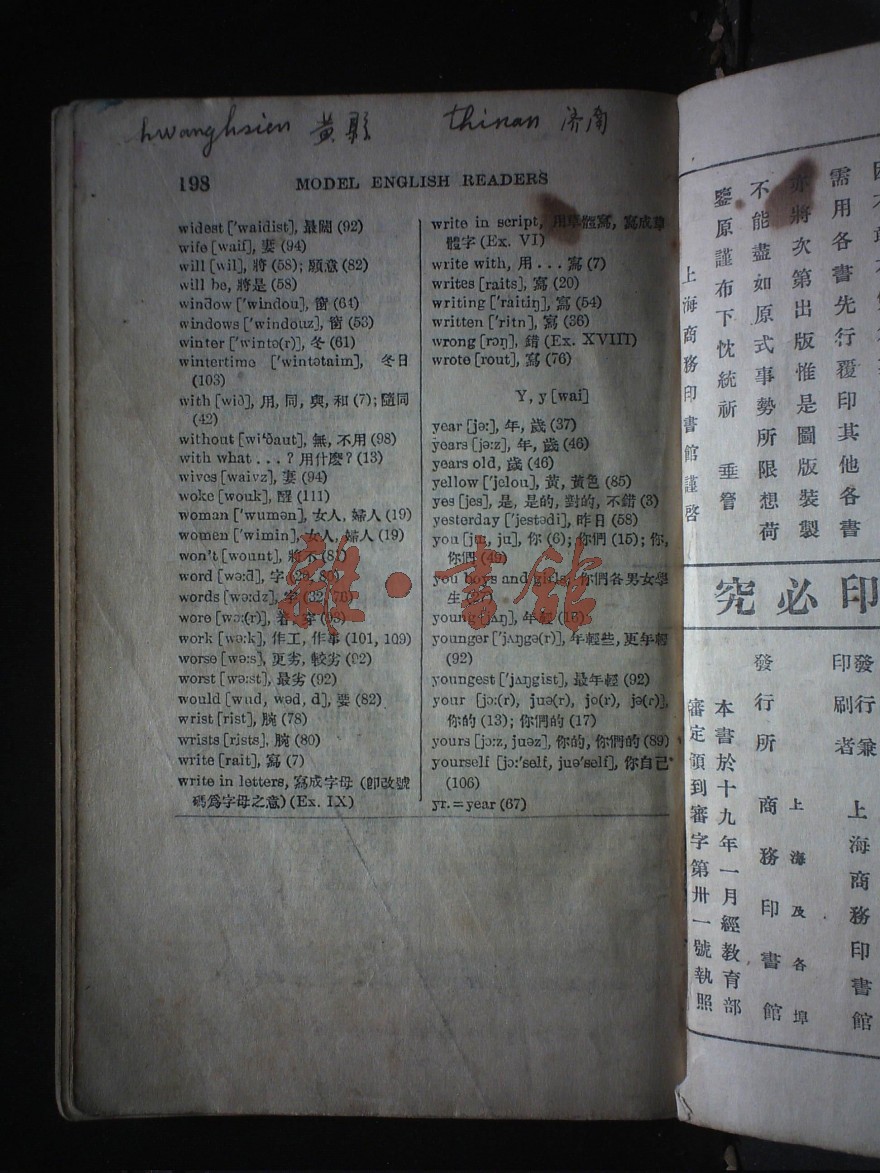 hwanghsien 黄县 thinan 济南
198 MODEL ENGLISH READERS
widest ['waidist], 最闊 (92)
wife [waif], 妻 (94)
will [wil], 將 (58); 願意 (82)
will be, 將是 (58)
window ['windou], 窗 (64)
windows ['windouz], 窗 (53)
winter ['wintə(r)], 冬 (61)
wintertime ['wintətaim], 冬日
(103)
with [wið], 用, 同, 與, 和 (7); 隨同
(42)
without [wi'ðaut], 無, 不用 (98)
with what . . . ? 用什麽? (13)
wives [waivz], 妻 (94)
woke [wouk], 醒 (111)
woman ['wumən], 女人, 婦人 (19)
women ['wimin], 女人, 婦人 (19)
won't [wount], 將不 (81)
word [wə:d], 字
words [wə:dz], 字 (32, 76)
wore [wɔ:(r)], 著, 穿 (98)
work [wə:k], 作工, 作事 (101, 109)
worse [wə:s], 更劣, 較劣 (92)
worst [wə:st], 最劣 (92)
would [wud, wəd, d], 要 (82)
wrist [rist], 腕 (78)
wrists [rists], 腕 (80)
write [rait], 寫 (7)
write in letters, 寫成字母 (卽改號
碼爲字母之意) (Ex. IX)
write in script, 用草體寫, 寫成草
體字 (Ex. VI)
write with, 用 . . . 寫 (7)
writes [raits], 寫 (20)
writing ['raitiŋ], 寫 (54)
written ['ritn], 寫 (36)
wrong [rɔŋ], 錯 (Ex. XVIII)
wrote [rout], 寫 (76)
Y, y [wai]
year [jə:], 年, 歲 (37)
years [jə:z], 年, 歲 (46)
years old, 歲 (46)
yellow ['jelou], 黃, 黃色 (85)
yes [jes], 是, 是的, 對的, 不錯 (3)
yesterday ['jestədi], 昨日 (58)
you [ju:, ju], 你 (6); 你們 (15); 你,
你們 (49)
you boys and girls, 你們各男女學
生
young [jʌŋ], 年輕
younger ['jʌŋgə(r)], 年輕些, 更年輕
(92)
youngest ['jʌŋgist], 最年輕 (92)
your [jɔ:(r), juə(r), jo(r), jə(r)],
你的 (13); 你們的 (17)
yours [jɔ:z, juəz], 你的, 你們的 (89)
yourself [jɔ:'self, juə'self], 你自己
(106)
yr. = year (67)
雜·書館
需用各書先行覆印其他各書
亦將次第出版惟是圖版裝製
不能盡如原式事勢所限想荷
鑒原謹布下忱統祈 垂詧
上海商務印書館謹啓
印必究
發行兼
印刷者 上海商務印書館
發行所 商務印書館
上海及各埠
本書於十九年一月經教育部
審定領到審字第卅一號執照